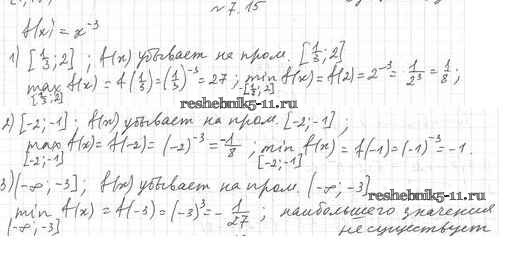 №7.15
f(x) = x⁻³
1) [1/3; 2] ; f(x) убывает на пром. [1/3; 2]
max f(x) = f(1/3) = (1/3)⁻³ = 27 ; min f(x) = f(2) = 2⁻³ = 1/2³ = 1/8 ;
[1/3; 2] [1/3; 2]
reshebnik5-11.ru
2) [-2; -1] ; f(x) убывает на пром. [-2; -1] ;
max f(x) = f(-2) = (-2)⁻³ = -1/8 ; min f(x) = f(-1) = (-1)⁻³ = -1.
[-2; -1] [-2; -1]
3) (-∞; -3] ; f(x) убывает на пром. (-∞; -3]
reshebnik5-11.ru
min f(x) = f(-3) = (-3)³ = -1/27 ; наибольшего значения
(-∞; -3] не существует